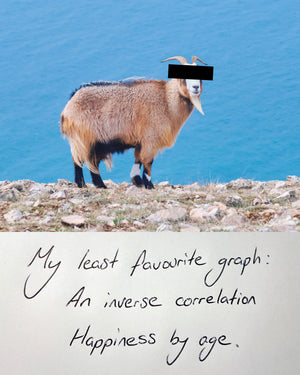 My least favourite graph:
An inverse correlation
Happiness by age.